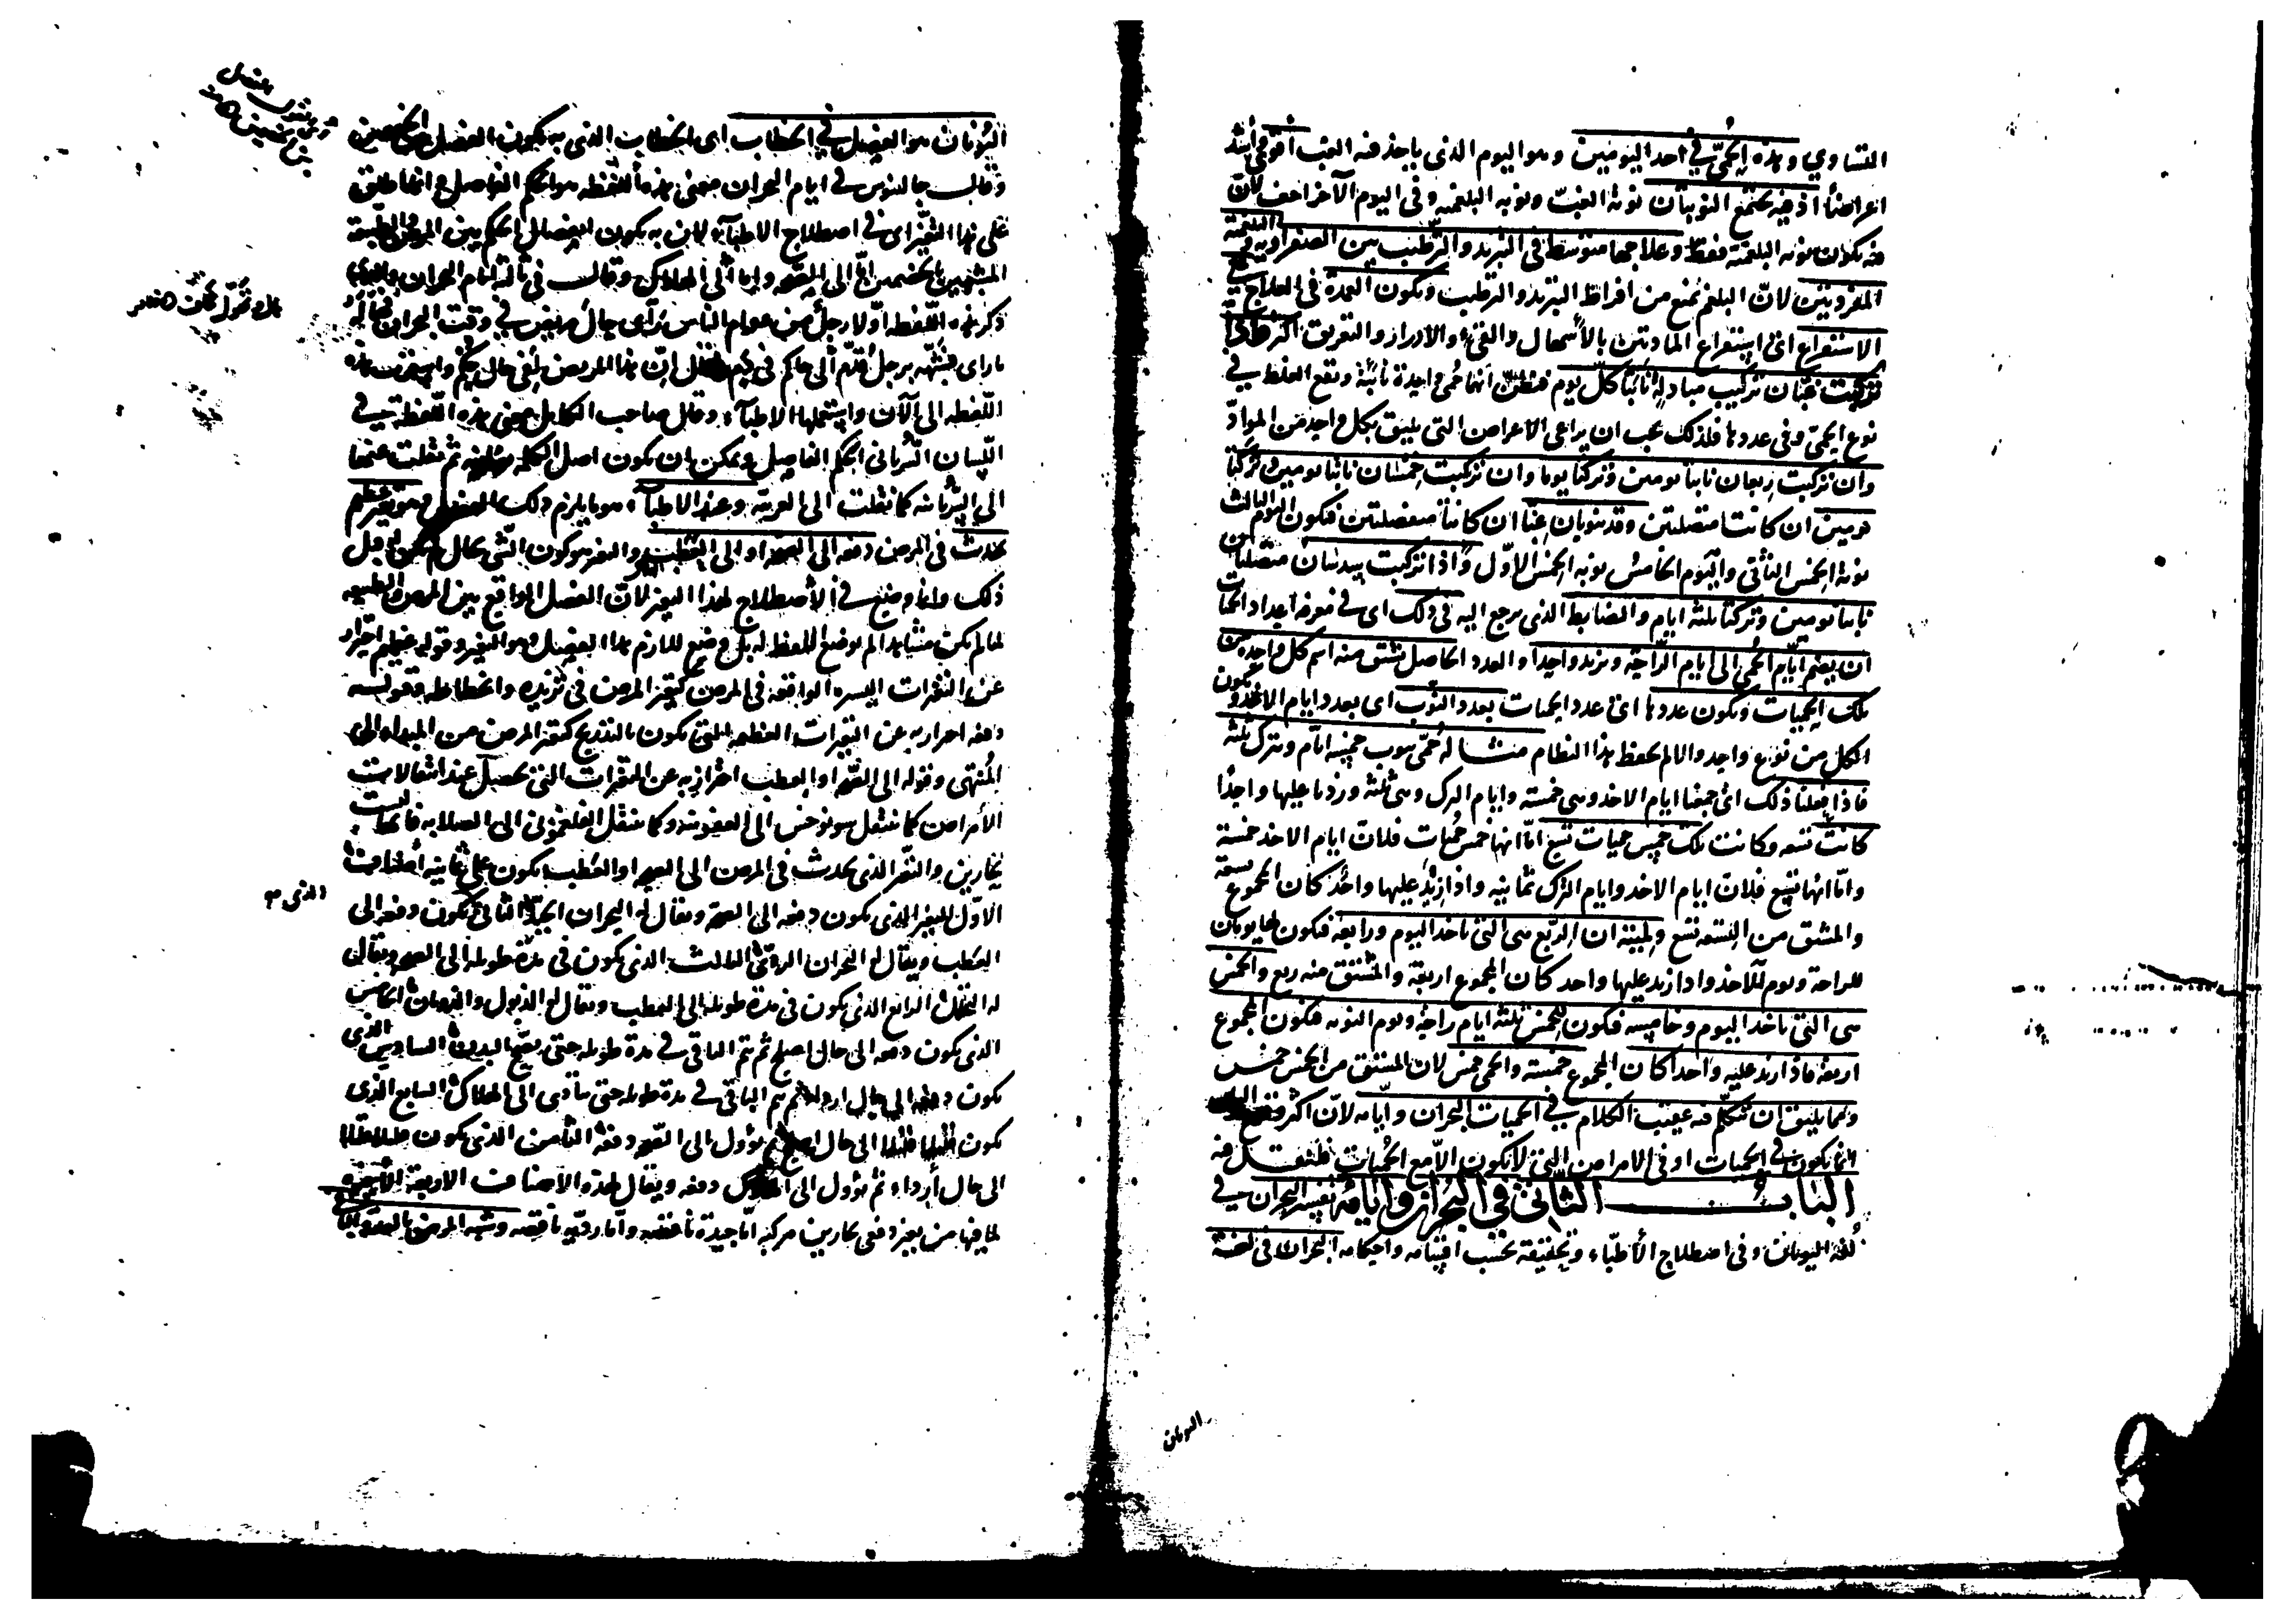 التساوي وهذه الحمى في احد اليومين وهو اليوم الذى ياخذ فيه الغب اقوى واشد
اعراضا اذ فيه تجتمع النوبتان نوبة الغب ونوبة البلغمية وفى اليوم الآخر اخف لان
فيه يكون نوبة البلغمية فقط وعلاجها متوسط فى التبريد والترطيب بين الصفراوية والبلغمية
المفردتين لان البلغم يمنع من افراط التبريد والترطيب ويكون العمدة فى العلاج
الاستفراغ اى استفراغ المادتين بالاسهال والقئ والادرار والتعريق
تركبت غبان تركيب مبادلة نابتا كل يوم فيظن انها حمى واحدة نائبة ويقع الغلط في
نوع الحمى وفى عددها فلذلك يجب ان يراعى الاعراض التى يليق بكل واحد من المواد
وان تركبت ربعان نابتا يومين وتركتا يوما وان تركبت خمسان نابتا يومين وتركتا
يومين ان كانتا متصلتين وقد ينوبان غبا ان كانتا منفصلتين فيكون اليوم الثالث
نوبة الخمس الثانى واليوم الخامس نوبة الخمس الاول واذا تركبت سدسان متصلتان
نابتا يومين وتركتا ثلثة ايام والضابط الذى يرجع اليه فى ذلك اى في معرفة اعداد الحميات
ان يضم ايام الحمى الى ايام الراحة ويزيد واحدا والعدد الحاصل يشتق منه اسم كل واحدة من
تلك الحميات ويكون عددها اى عدد الحميات بعدد النوب اى بعدد ايام الاخذ ويكون
الكل من نوع واحد والا لم يحفظ هذا النظام مثاله حمى ينوب خمسة ايام ويترك ثلثة
فاذا فعلنا ذلك اى جمعنا ايام الاخذ وهى خمسة وايام الترك وهى ثلثة وزدنا عليها واحدا
كانت تسعة وكانت تلك خمس حميات تسع اما انها خمس حميات فلان ايام الاخذ خمسة
واما انها تسع فلان ايام الاخذ وايام الترك ثمانية واذا زيد عليها واحد كان المجموع تسعة
والمشتق من التسعة تسع ولبينة ان الربع هى التى تاخذ اليوم ورابعه فيكون لها يومان
للراحة ويوم للاخذ واذا زيد عليها واحد كان المجموع اربعة والمشتق منه ربع والخمس
هى التى تاخذ اليوم وخامسه فيكون للخمس ثلثة ايام راحة ويوم النوبة فيكون المجموع
اربعة فاذا زيد عليه واحدا كان المجموع خمسة والحمى خمس لان المشتق من الخمس خمس
ومما يليق ان نتكلم فيه عقيب الكلام في الحميات البحران وايامه لان اكثر
انما يكون في الحميات او فى الامراض التى لا يكون الا مع الحميات فلنقل فيه
الباب الثانى فى البحران وايامه تفسير البحران في
لغة اليونان وفى اصطلاح الأطباء وتحقيقه بحسب اقسامه واحكامه البحران فى لغة
اليونان
اليونان هو الفصل في الخطاب اى الخطاب الذى به يكون الفصل بين الخصمين
وقال جالينوس في ايام البحران معنى هذه اللفظه هو الحكم الفاصل وانما اطلق
على هذا التغير اى في اصطلاح الاطباء لان به يكون انفصال الحكم بين المرض والطبيعة
المشبهين بالخصمين اما الى الصحة واما الى الهلاك وقال فى ثالثة ايام البحران
ذكر هذه اللفظة اولا رجل من عوام الناس رأى حال مريض في وقت البحران
ما راى فشبهه برجل قدم الى حاكم فى ان هذا المريض
اللفظه الى الآن واستعملها الاطباء وقال صاحب الكامل معنى هذه اللفظة في
اللسان السريانى الحكم الفاصل ويمكن ان يكون اصل الكلمة يونانية ثم نقلت عنها
الى السريانية كما نقلت الى العربية وعند الاطباء هو ما يلزم ذلك الفصل وهو تغير عظيم
يحدث فى المرض دفعة الى الصحة او الى العطب والتغير هو كون الشئ بحال لم يكن له قبل
ذلك وانما وضع في الاصطلاح لهذا التغير لان الفصل الواقع بين المرض والطبيعة
لما لم يكن مشاهدا لم يوضع اللفظ له بل وضع للازم هذا الفصل وهو التغير وقوله عظيم احتراز
عن التغيرات اليسيرة الواقعة فى المرض كتغير المرض فى تزيده وانحطاطه وقوله
دفعة احتراز به عن التغيرات العظيمة التى يكون بالتدريج كتغير المرض من المبداء الى
المنتهى وقوله الى الصحة او العطب احتراز به عن التغيرات التى تحصل عند انتقالات
الأمراض كما ينتقل سونوخس الى العفونة وكما ينتقل الفلغمونى الى الصلابة فانها ليست
بحارين والتغير الذى يحدث فى المرض الى الصحة او العطب يكون على ثمانية أصناف
الاول التغير الذى يكون دفعة الى الصحة ويقال له البحران الجيد الثانى يكون دفعة الى
الذى
العطب ويقال له البحران الردئ الثالث الذى يكون فى مدة طويلة الى الصحة ويقال
له التحلل الرابع الذى يكون فى مدة طويلة الى العطب ويقال له الذبول والذوبان الخامس
الذى يكون دفعة الى حال اصلح ثم يتم الباقى في مدة طويلة حتى يصح البدن السادس الذى
يكون دفعة الى حال اردأ ثم يتم الباقى في مدة طويلة حتى يتأدى الى الهلاك السابع الذى
يكون قليلا قليلا الى حال اصلح ثم يؤول الى الصحة دفعة الثامن الذى يكون قليلا قليلا
الى حال أرداء ثم يؤول الى الهلاك دفعة ويقال لهذه الاصناف الاربعة الأخيرة
لما فيها من تغير دفعى بحارين مركبة اما جيدة ناقصة واما رديه ناقصه وشبه المرض بالعدو